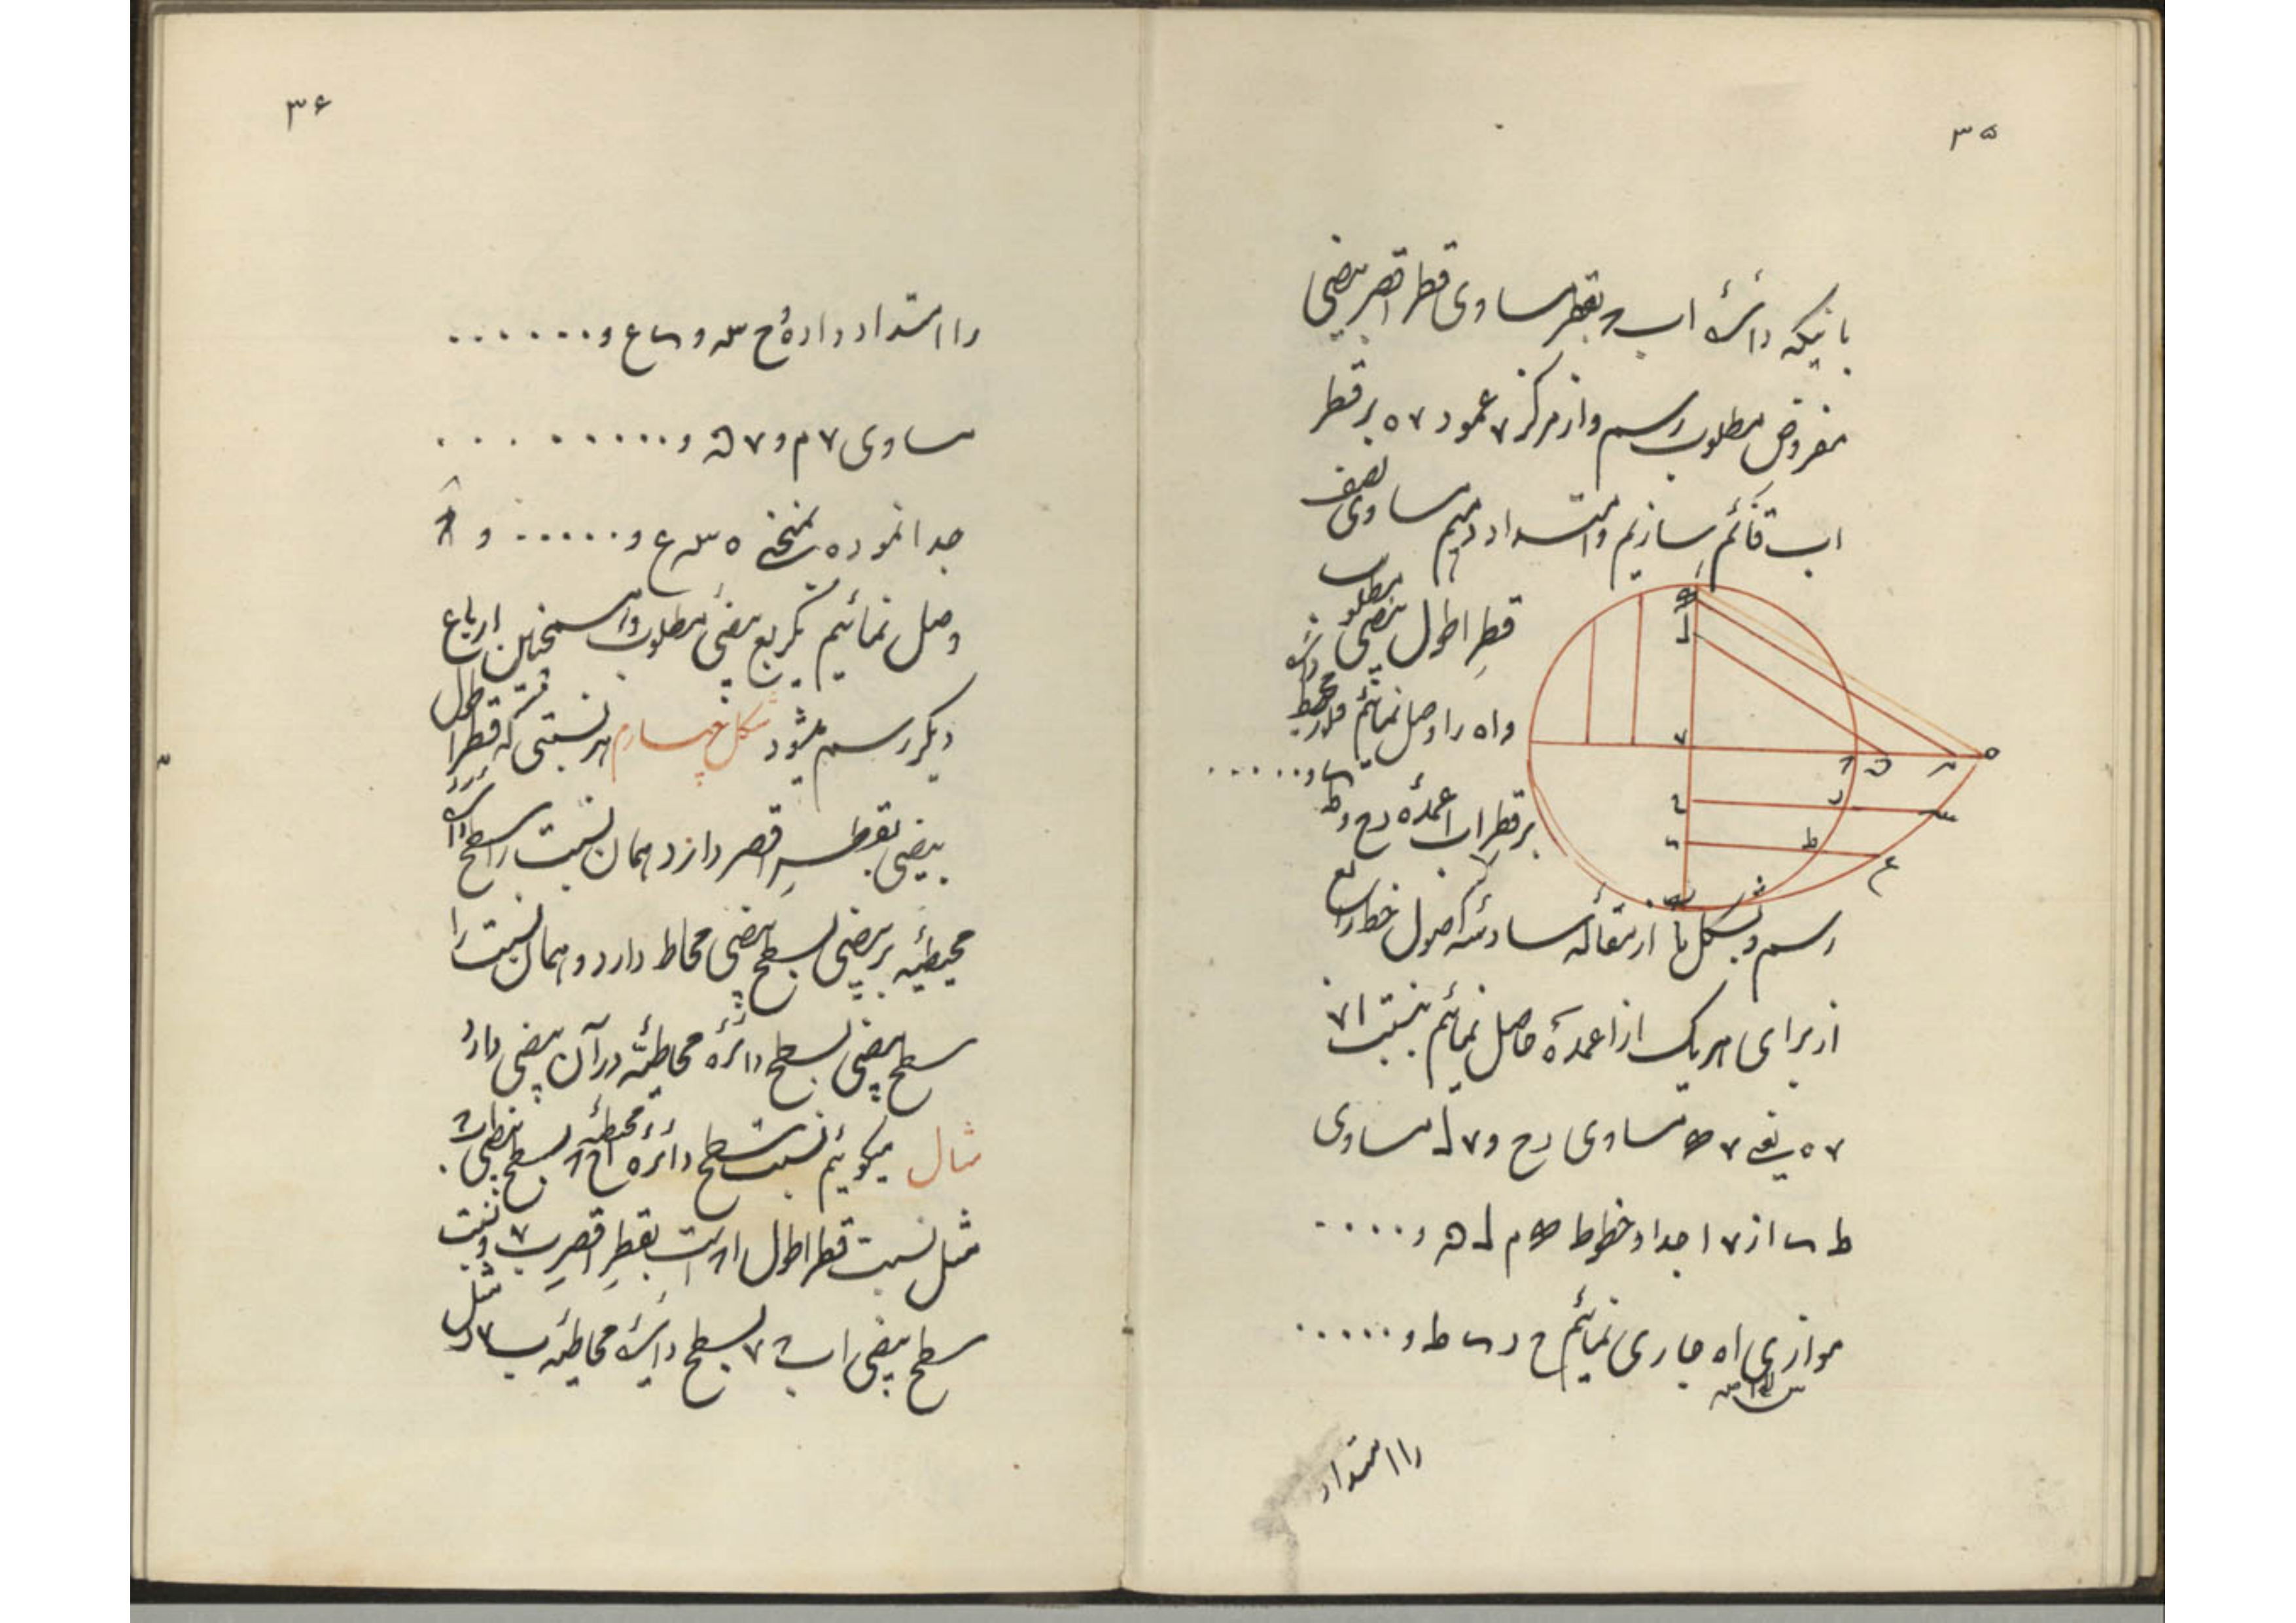 ۳۵
باینکه دائرهٔ اب بقطر مساوی قطر اقصر بیضی
مفروض مطلوب رسم و از مرکز ۷ عمود ۷ ه بر قطر
اب قائم سازیم و امتداد دهیم مساوی نصف
قطر اطول بیضی مطلوب
و اه را وصل نمائیم و در محیط دائره
بر قطر اب اعمدهٔ رح و طی و . . . . .
رسم و بشکل یا از مقالهٔ سادسهٔ اصول خط رابع
از برای هر یک از اعمدهٔ حاصل نمائیم بنسبت ۷ا
۷ ه یعنی ۷ مساوی رح و ۷ ل مساوی
ط از ۷ ا جدا و خطوط م ل و . . . .
موازی اه جاری نمائیم ح ر ط و . . . . .
را امتداد
۳۶
را امتداد داده ح س و ع و . . . . . .
مساوی ۷ م و ۷ ن و . . . . . . . . .
جدا نموده منحنی ه س ع و . . . . . و
وصل نمائیم که ربع بیضی مطلوب و همچنین ارباع
دیگر رسم میشود شکل چهارم هر نسبتی که قطر اطول
بیضی بقطر اقصر دارد همان نسبت را سطح دائرهٔ
محیطیه بر بیضی بسطح بیضی محاط دارد و همان نسبت را
سطح بیضی بسطح دائرهٔ محاطیّه در آن بیضی دارد
مثال میگوئیم نسبت سطح دائرهٔ محیطیه بسطح بیضی
مثل نسبت قطر اطول است بقطر اقصر ب ۷ و نسبت
سطح بیضی اب ۷ بسطح دائرهٔ محاطیه مثل